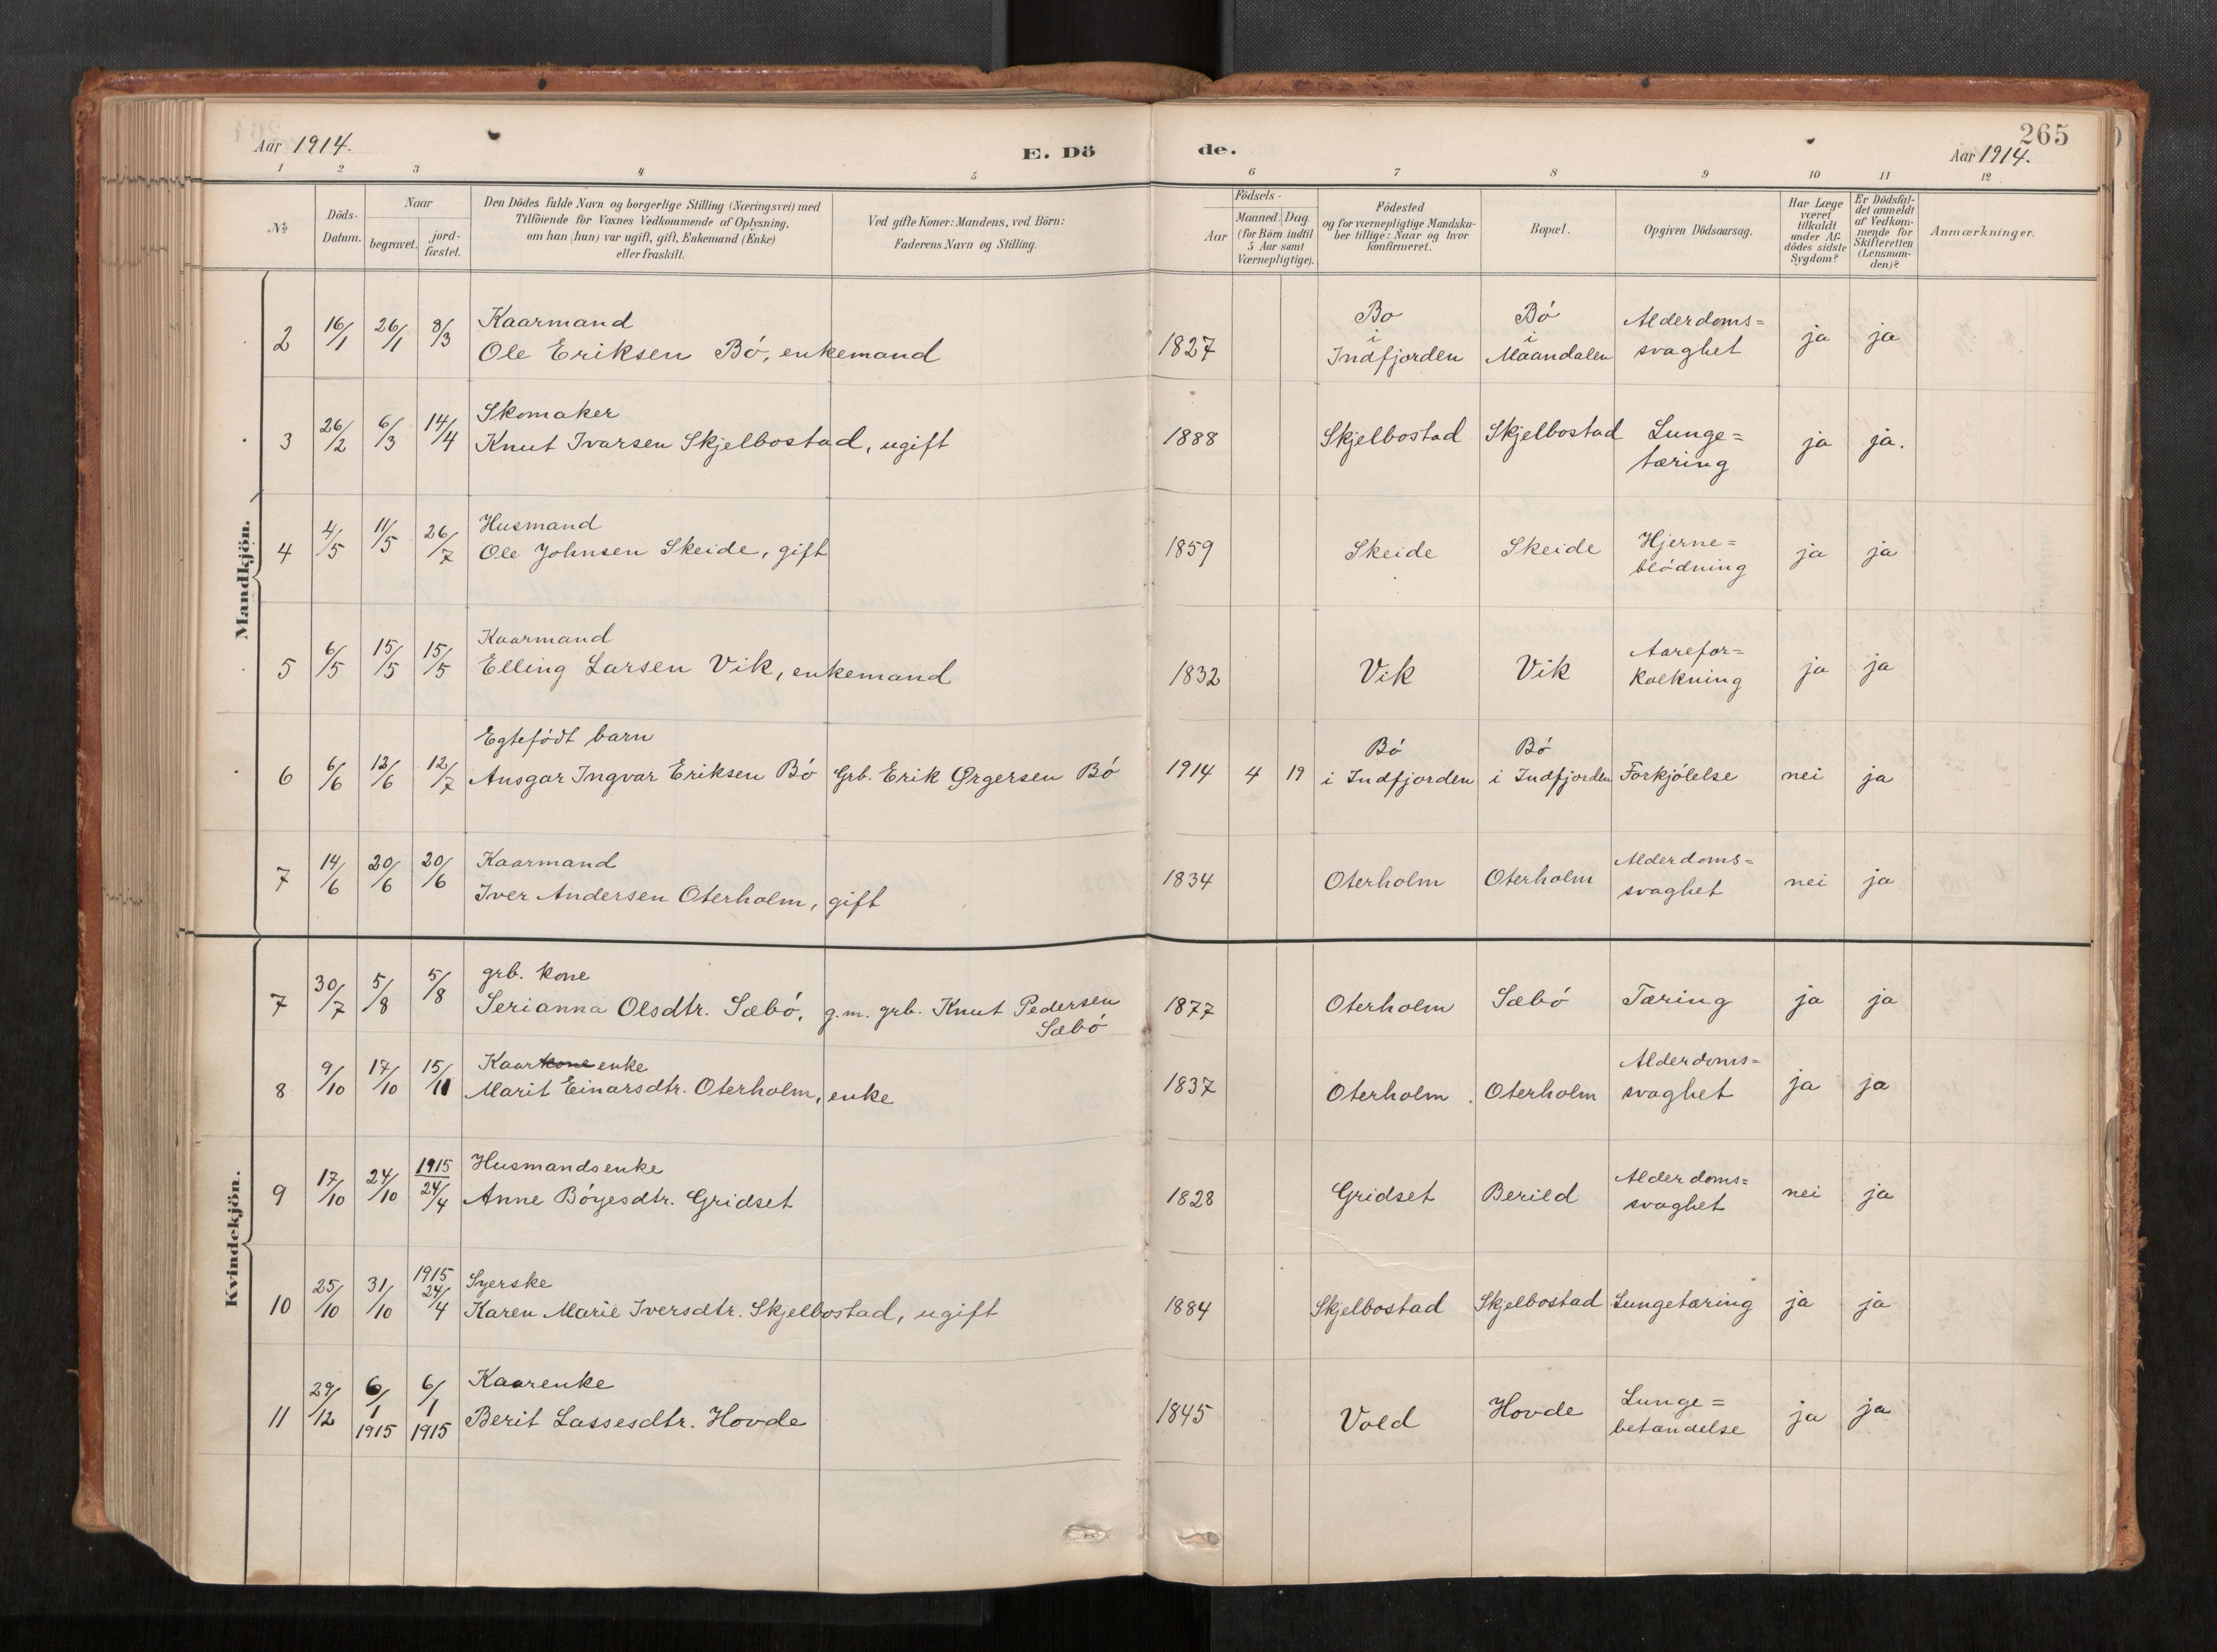 265
Aar 1914.
E. Dö
de.
Aar 1914.
1 2 3 4 5 6 7 8 9 10 11 12
No
Döds-
Datum.
Naar
begravet.
jord-
fæstet.
Den Dödes fulde Navn og borgerlige Stilling (Næringsvei) med
Tilföiende for Voxnes Vedkommende af Oplysning,
om han (hun) var ugift, gift, Enkemand (Enke)
eller fraskilt.
Ved gifte Koner: Mandens, ved Börn:
Faderens Navn og Stilling.
Födsels-
Aar
Maaned. Dag.
(for Börn indtil
5 Aar samt
Værnepligtige).
Födested
og for værnepligtige Mandska-
ber tillige: Naar og hvor
konfirmeret.
Bopæl.
Opgiven Dödsaarsag.
Har Læge
været
tilkaldt
under Af-
dödes sidste
Sygdom?
Er Dödsfal-
det anmeldt
af Vedkom-
mende for
Skifteretten
(Lensman-
den)?
Anmærkninger.
Mandkjön.
2 16/1 26/1 8/3 Kaarmand
Ole Eriksen Bó, enkemand 1827
Bo
i
Indfjorden
Bó
i
Maandalen
Alderdoms=
svaghet
ja ja
3 26/2 6/3 14/4 Skomaker
Knut Ivarsen Skjelbostad, ugift 1888 Skjelbostad Skjelbostad Lunge=
tæring
ja ja.
4 4/5 11/5 26/7 Husmand
Ole Johnsen Skeide, gift 1859 Skeide Skeide Hjerne=
blódning
ja ja
5 6/5 15/5 15/5 Kaarmand
Elling Larsen Vik, enkemand 1832 Vik Vik Aarefor=
kalkning
ja ja
6 6/6 12/6 12/7 Egtefódt barn
Ansgar Ingvar Eriksen Bó Grb. Erik Ørgersen Bó 1914 4 19
Bó
i Indfjorden
Bó
i Indfjorden
Forkjólelse nei ja
7 14/6 20/6 20/6 Kaarmand
Iver Andersen Oterholm, gift 1834 Oterholm Oterholm Alderdoms=
svaghet
nei ja
Kvindekjön.
7 30/7 5/8 5/8 grb. kone
Serianna Olsdtr. Sæbó, g.m. grb. Knut Pedersen
Sæbó
1877 Oterholm Sæbó Tæring ja ja
8 9/10 17/10 15/11 Kaarkone enke
Marit Einarsdtr. Oterholm, enke 1837 Oterholm. Oterholm Alderdoms=
svaghet
ja ja
9 17/10 24/10 1915 24/4 Husmandsenke
Anne Bóyesdtr. Gridset 1828 Gridset Berild Alderdoms=
svaghet
nei ja
10 25/10 31/10 1915 24/4 Syerske
Karen Marie Iversdtr. Skjelbostad, ugift 1884 Skjelbostad Skjelbostad Lungetæring ja ja
11 29/12 6/1 1915 6/1 1915 Kaarenke
Berit Lassesdtr. Hovde 1845 Vold Hovde Lunge=
betændelse
ja ja